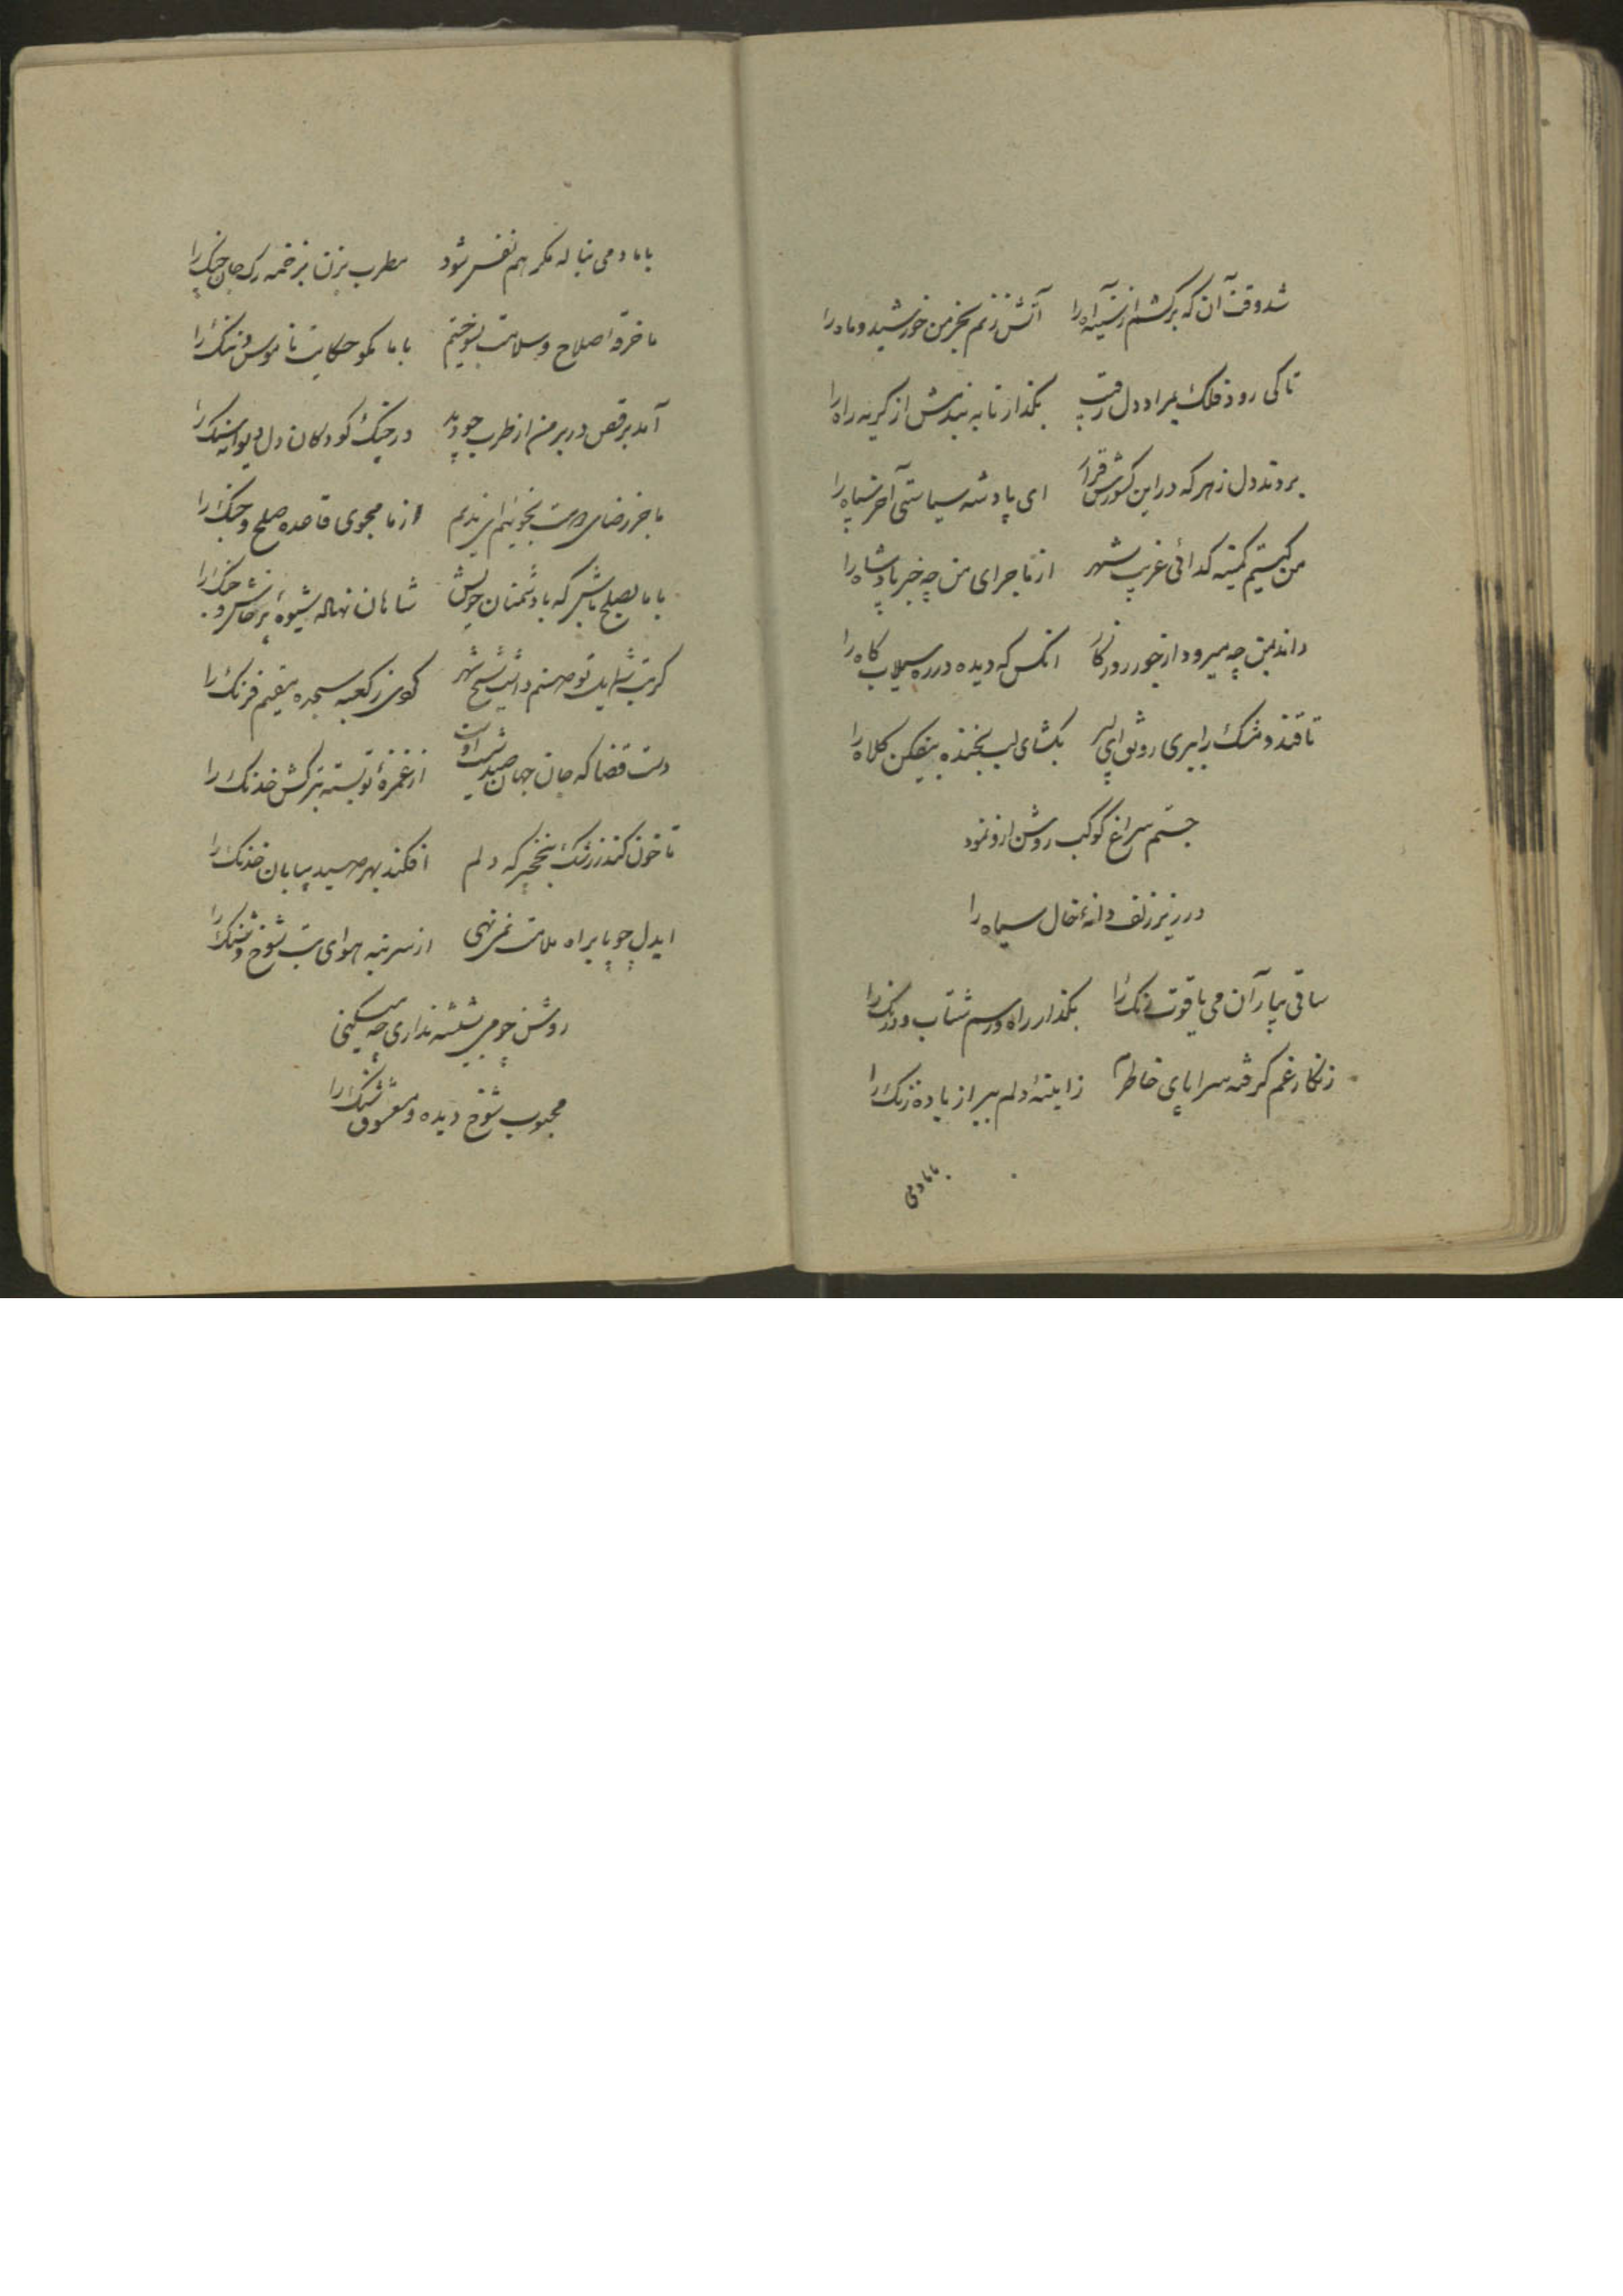 شد وقت آن که برکشم از سینه آه را آتش زنم بخرمن خورشید و ماه را
تا کی رود فلک بمراد دل رقیب بگذار تا به بندمش از گریه راه را
بردند دل زهر که در این کشورش قرار ای پادشه سیاستی آخر سپاه را
من کیستم کمینه گدائی غریب شهر از ماجرای من چه خبر پادشاه را
داند بمن چه میرود از جور روزگار انکس که دیده در ره سیلاب کاه را
تا قند و مشک را ببری رونق ای پسر بگشای لب بخنده بیفکن کلاه را
جستم سراغ کوکب روشن ازو نمود
در زیر زلف دانهٔ خال سیاه را
ساقی بیار آن می یاقوت رنگ را بگذار راه و رسم شتاب و درنگ را
زنگار غم گرفته سراپای خاطرم ز اینهٔ دلم ببر از باده زنگ را
با ما دمی
با ما دمی بناله مگر هم نفس شود مطرب بزن بزخمه رک جان چنگ را
ما خرقه اصلاح و سلامت بسوختیم با ما مگو حکایت ناموس و ننگ را
آمد برقص در بر من از طرب چو دید در چنگ کودکان دل دیوانه سنگ را
ما جز رضای دوست نجوئیم ای ندیم از ما مجوی قاعده صلح و جنگ را
با ما بصلح باش که با دشمنان خویش شاهان نهاله شیوهٔ پرخاش و جنگ را
گر بت بشاید تو صنم داشت شیخ شهر کردی ز کعبه سجده مقیم فرنگ را
دست قضا که جان جهان صید شست اوست از غمزهٔ تو بسته بترکش خدنگ را
تا خون کند ز رشک بنخجیر که دلم افکند بهر صید بیابان خدنگ را
ایدل چو پا براه ملامت نمی نهی از سر بنه هوای بت شوخ و شنگ را
روشن چو می بشیشه نداری چه میکنی
محبوب شوخ دیده و معشوق شنگ را